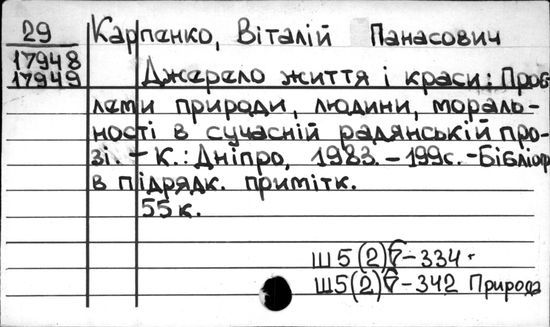 29 Карпенко, Віталій Панасович
17948
17949 Джерело життя і краси: Проб
леми природи, людини, мораль-
ності в сучасній радянській про
зі. - К.: Дніпро, 1983. - 199с. - Бібліогр
в підрядк. примітк.
55к.
Ш5(2)
-334.
Ш5(2)
-342 Природа